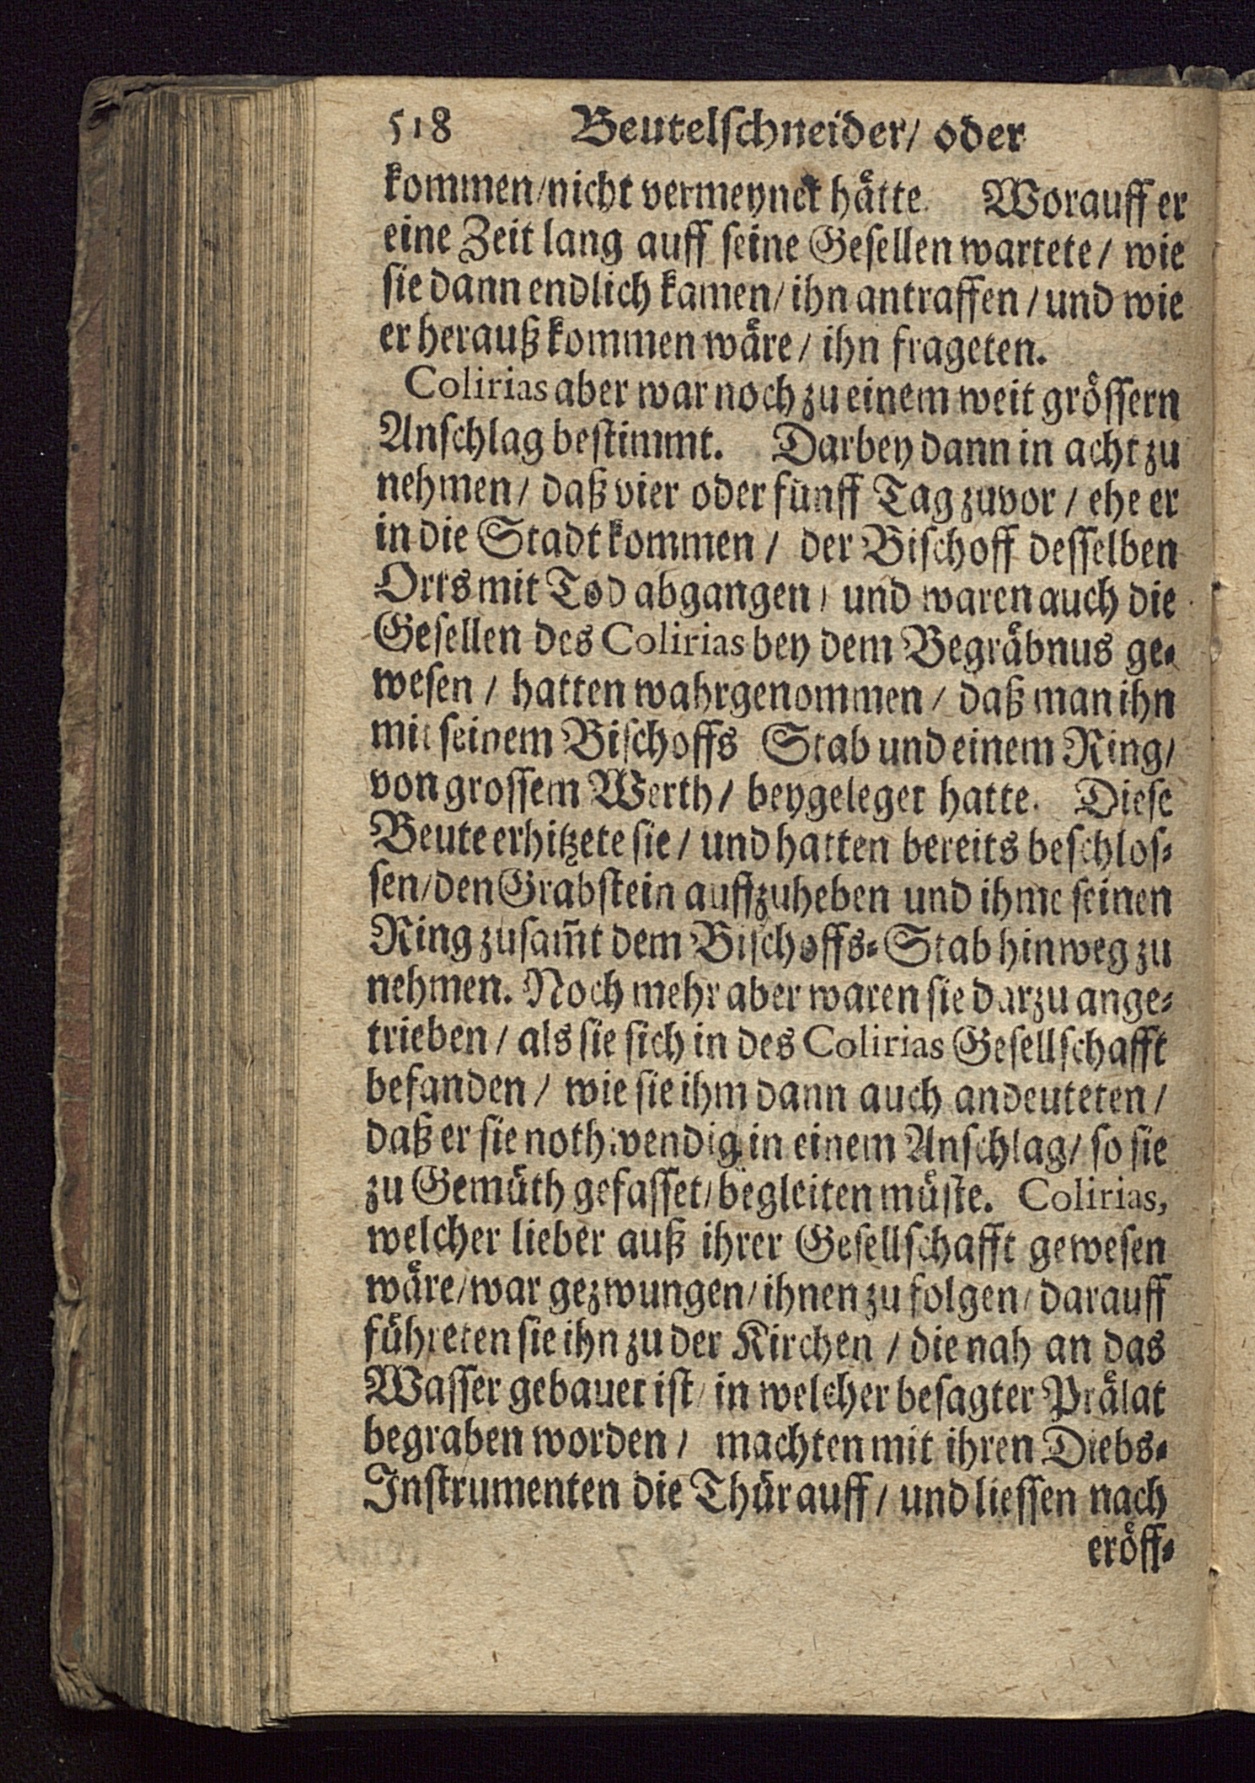 518 Beutelschneider/ oder
kommen/nicht vermeynet hätte. Worauff er
eine Zeit lang auff seine Gesellen wartete/ wie
sie dann endlich kamen/ ihn antraffen/ und wie
er herauß kommen wäre/ ihn frageten.
Colirias aber war noch zu einem weit grössern
Anschlag bestimmt. Darbey dann in acht zu
nehmen/ daß vier oder fünff Tag zuvor/ ehe er
in die Stadt kommen/ der Bischoff desselben
Orts mit Tod abgangen/ und waren auch die
Gesellen des Colirias bey dem Begräbnus ge-
wesen/ hatten wahrgenommen/ daß man ihn
mit seinem Bischoffs Stab und einem Ring/
von grossem Werth/ beygeleget hatte. Diese
Beute erhitzete sie/ und hatten bereits beschlos-
sen/den Grabstein auffzuheben und ihme seinen
Ring zusam̃t dem Bischoffs-Stab hinweg zu
nehmen. Noch mehr aber waren sie darzu ange-
trieben/ als sie sich in des Colirias Gesellschafft
befanden/ wie sie ihm dann auch andeuteten/
daß er sie nothwendig in einem Anschlag/ so sie
zu Gemüth gefasset/ begleiten müste. Colirias,
welcher lieber auß ihrer Gesellschafft gewesen
wäre/war gezwungen/ ihnen zu folgen/ darauff
führeten sie ihn zu der Kirchen/ die nah an das
Wasser gebauet ist/ in welcher besagter Prälat
begraben worden/ machten mit ihren Diebs-
Instrumenten die Thür auff/ und liessen nach
eröff-